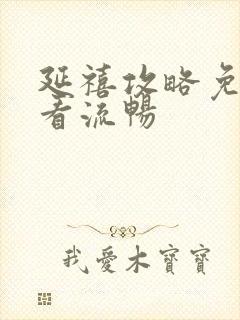 延禧攻略免
看流暢
我愛木寶寶